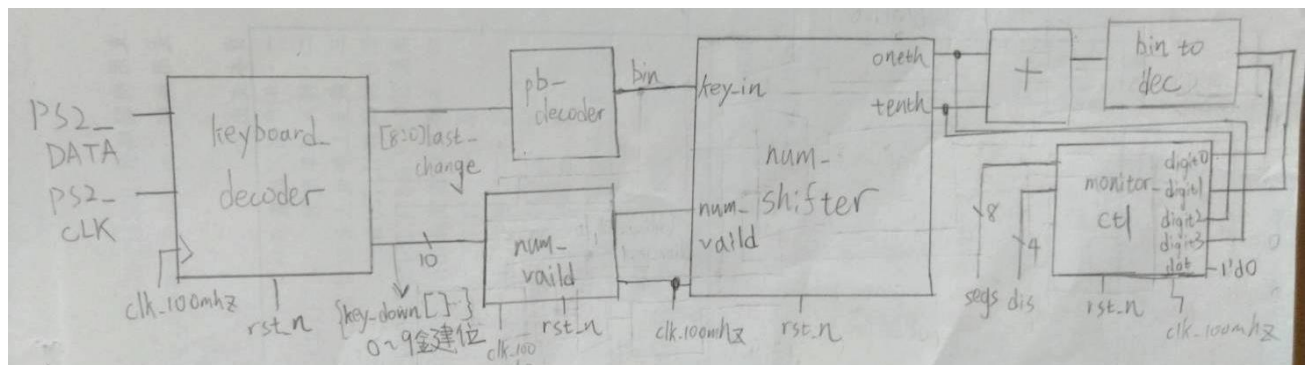 PS2_
DATA
PS2_
CLK
keyboard_
decoder
clk_100mhz
rst_n
[8:0]last_
change
10
{key_down[]..}
0~9金建位
pb_
decoder
bin
num_
vaild
clk_100
rst_n
key_in
num_
vaild
num_
shifter
oneth
tenth
clk_100mhz
rst_n
+
bin to
dec
monitor_
ctl
digit0
digit1
digit2
digit3
dot
1'd0
8
4
segs dis
rst_n
clk_100mhz